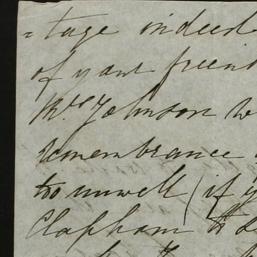 =tage indeed
of your friend
Mrs Johnson w
remembrance
to unwell (if y
Clapham to